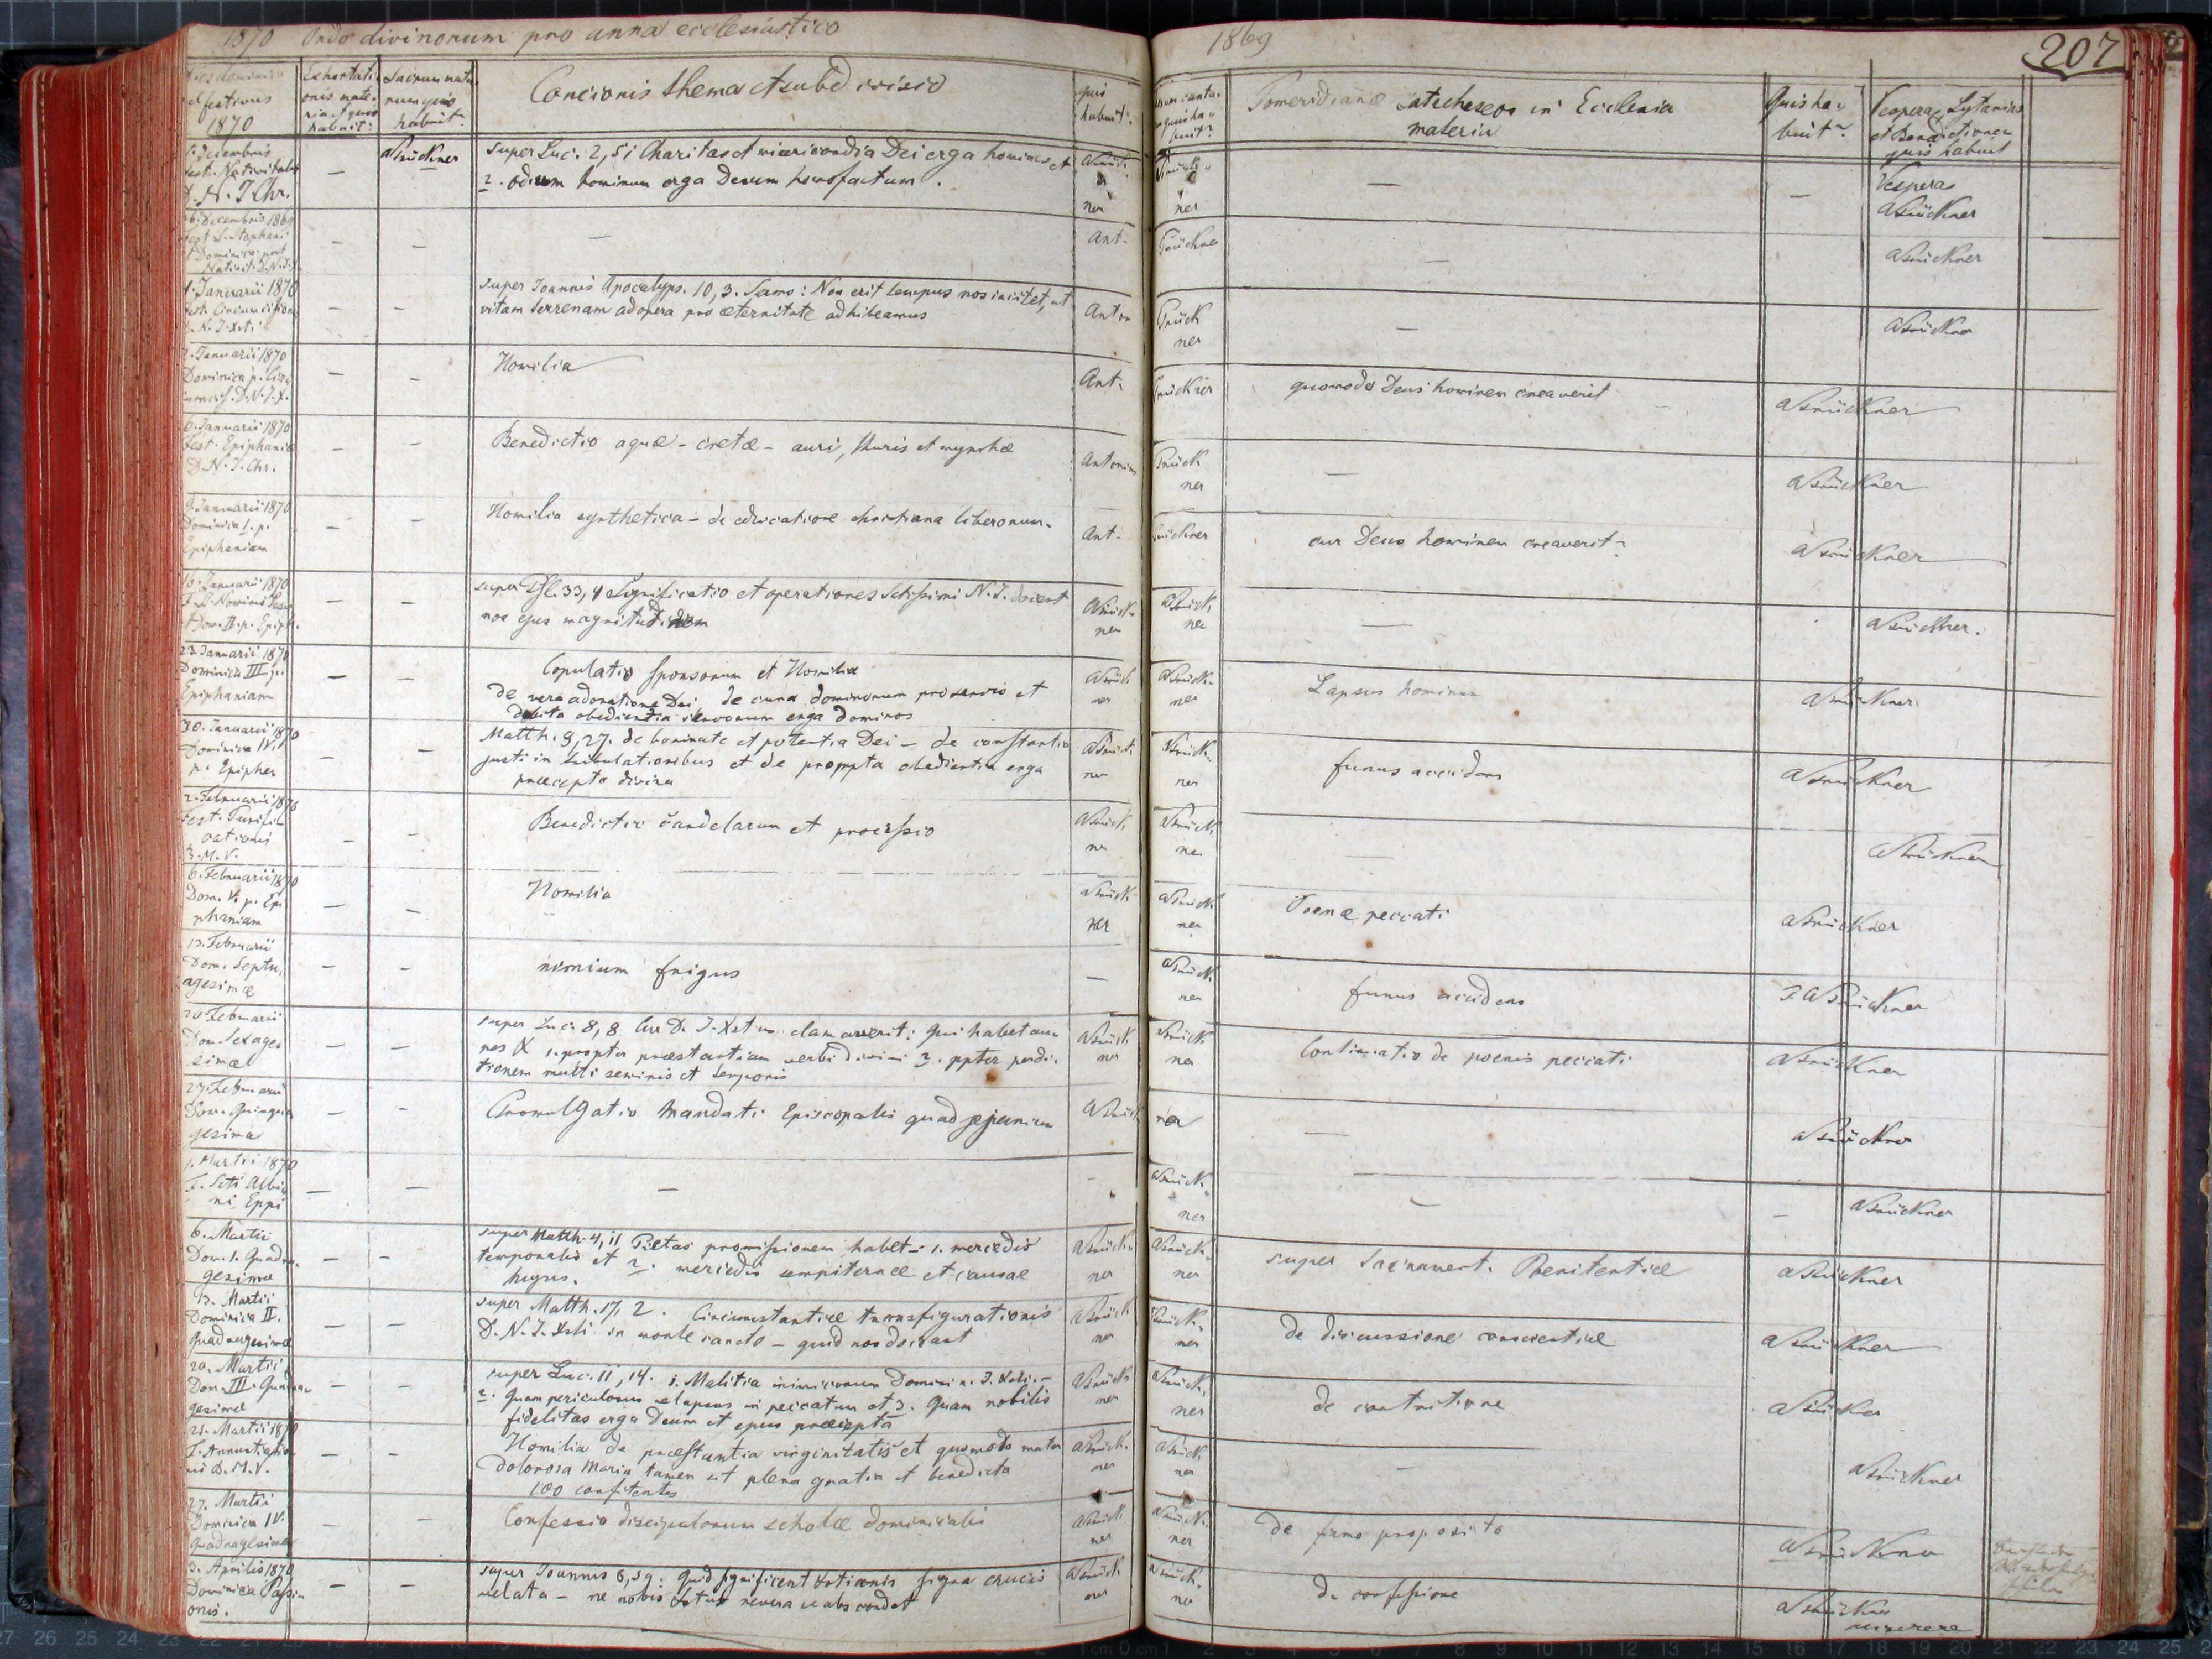 1870 Ordo divinorum pro anno ecclesiastico
1869
207
Dies dominica
vel festivus
1870
Exhortati
onis mate-
ria et quis
habuit?
Sacrum matu
rum quis
habuit?
Concionis thema et subdivisio
quis
habuit?
quis ha-
buit?
Pomeridianae catecheseos in Ecclesia
materia
Quis ha-
buit?
Vesperas, Lytanias
et Benedictionem
quis habuit
decembris
fest. Nativitatis
D. N. J. Chr.
—
Brückner
super Luc. 2, 51 Charitas et misericordia Dei erga homines et
2. odium hominum erga Deum homofactum.
ner
ner
—
—
Vesperas
Brückner
26. Decembris 1869
fest S. Stephani
Dominica post
Nativit. D. N. J. X.
—
—
—
Ant.
Brückner
—
Brückner
1. Januarii 1870
fest. Circumcisionis
D. N. J. Xsti
—
—
super Joannis Apocalyps. 10, 3. Serm: Non erit tempus nos incitet, ut
vitam terrenam ad opera pro aeternitate adhibeamus
Anton
Brück
ner
—
Brückner
2. Januarii 1870
Dominica p. Circ
umcis. D. N. J. X.
—
—
Homilia
Ant.
Brückner
quomodo Deus hominem creaverit
Brückner
6. Januarii 1870
Fest. Epiphaniae
D. N. J. Chr.
—
—
Benedictio aquae - cretae - auri, thuris et myrrhae
Antonius
Brück
ner
—
Brückner
9. Januarii 1870
Dominica 1. p.
Epiphaniam
—
—
Homilia synthetica - de educatione christiana liberorum.
Ant.
Brückner
cur Deus hominem creaverit?
Brückner
16. Januarii 1870
Dom. II. p. Epiph.
—
—
super Psl. 33, 4 Significatio et operationes Sctissimi N. J. docent
nos ejus magnitudinem
Brück-
ner
Brück.
ner
—
Brückner.
23. Januarii 1870
Dominica III p.
Epiphaniam
—
—
Copulatio sponsorum et Homilia
de vera adoratione Dei, de cura dominorum pro servis et
debita obedientia servorum erga dominos
Brück
ner
Brück-
ner
Lapsus hominum
Brückner
30. Januarii 1870
Dominica IV.
p. Epiphan
—
—
Matth. 8, 27. de bonitate et potentia Dei - de constantia
justi in tribulationibus et de prompta obedientia erga
praecepta divina
Brück.
ner
Brück-
ner
funus accidens
Brückner
2. Februarii 1870
Fest. Purifi
cationis
B. M. V.
—
—
Benedictio candelarum et processio
Brück.
ner
Brück.
ner
—
Brückner
6. Februarii 1870
Dom. V. p. Epi
phaniam
—
—
Homilia
Brück-
ner
Brück.
ner
Poenae peccati
Brückner
13. Februarii
Dom. Septu,
agesimae
—
—
nimium frigus
—
Brück.
ner
funus accidens
Brückner
20. Februarii
Dom Sexage
simae
—
—
super Luc. 8, 8 Cur D. J. Xstus clamaverit: Qui habet au
res & 1. propter praestantiam verbi divini 2. ppter perdi-
tionem multi seminis et temporis
Brück
ner
Brück
ner
Continuatio de poenis peccati
Brückner
27. Februarii
Dom. Quinqua
gesima
—
—
Promulgatio Mandati Episcopalis quad jejunium
Brück
ner
—
Brückner
1. Martii 1870
F. Scti Albi
ni Eppi
—
—
—
-
Brück.
ner
—
—
Brückner
6. Martii
Dom. 1. Quadra-
gesimae
—
—
super Matth. 4, 11 Pietas promissionem habet - 1. mercedis
temporalis et 2. mercedis sempiternae et causae
hujus.
Brück-
ner
Brück-
ner
super Sacrament. Poenitentiae
Brückner
13. Martii
Dominica II.
Quadragesimae
—
—
super Matth. 17, 2. Circumstantiae transfigurationis
D. N. J. Xsti in monte sancto - quid nos doceant
Brück
ner
Brück-
ner
de discussione conscientiae
Brückner
20. Martii
Dom. III. Quadra
gesimae
—
—
super Luc. 11, 14. 1. Malitia inimicorum Domini n. J. Xsti. -
2. Quam periculosus relapsus in peccatum et 3. Quam nobilis
fidelitas erga Deum et ejus praecepta
Brück
ner
Brück,
ner
de contritione
Brückner
25. Martii 1870
F. Annuntiatio
nis B. M. V.
—
—
Homilia de praestantia virginitatis et quomodo mater
dolorosa Maria tamen sit plena gratia et benedicta
100 confitentes
Brück-
ner
Brück,
ner
—
Brückner
27. Martii
Dominica IV.
Quadragesimae
—
—
Confessio discipulorum scholae dominicalis
Brück
ner
Brück.
ner
de firmo proposito
Brückner
3. Aprilis 1870
Dominica Passi-
onis.
—
—
super Joannis 8, 59. Quid significent signa crucis
velata - ne nobis Xstus revera se abscondat
Brück
ner
Brück.
ner
de confessione
Brückner
miserere